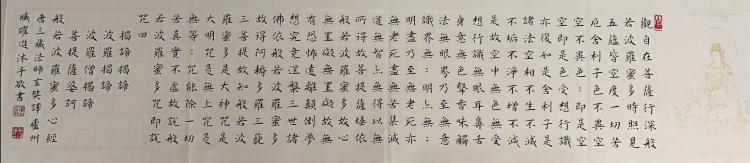 觀自在菩薩行深般
若波羅蜜多時照見
五蘊皆空度一切苦
厄舍利子色不異空
空不異色:即是空
空即是色受想行識
亦復如是舍利子是
諸法空相不生不滅
不垢不淨不增不減
是故空中無色無受
想行識無眼耳鼻舌
身意無色聲香味觸
法無眼界乃至無意
識界無:明亦無:
明盡乃至無老死亦
無老死盡無苦集滅
道無智亦無得以無
所得故菩提薩埵依
般若波羅蜜多故心
無罣礙無罣礙故無
有恐怖遠離顛倒夢
想究竟涅槃三世諸
佛依般若波羅蜜多
故得阿耨多羅三藐
三菩提故知般若波
羅蜜多是大神咒是
大明咒是無上咒是
無等:咒能除一切
苦真實不虛故說般
若波羅蜜多咒即說
咒曰
揭諦揭諦
波羅揭諦
波羅僧揭諦
菩提薩婆訶
般若波羅蜜多心經
唐三藏法師玄奘譯盧州
臧躍進沐手敬書